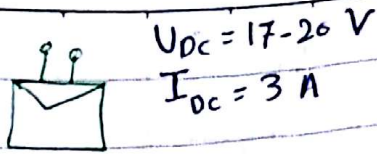 U_DC = 17-20 V
I_DC = 3 A